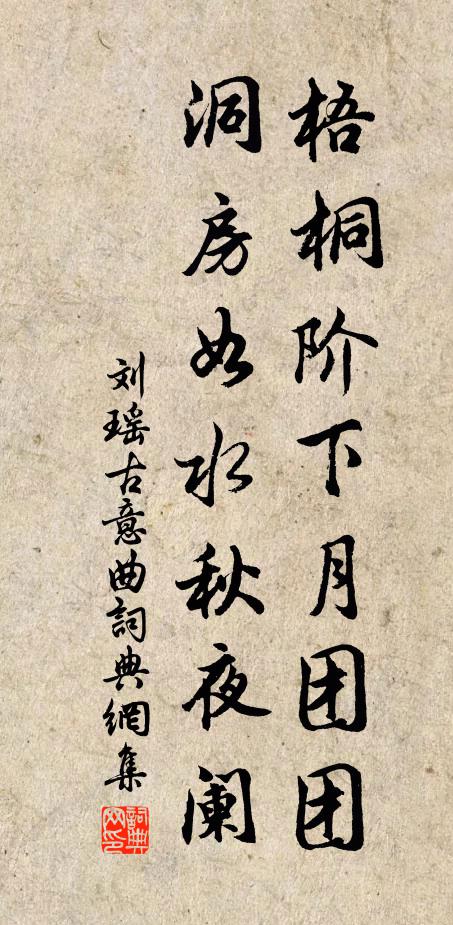 梧桐阶下月团团
洞房如水秋夜阑
刘瑶古意曲詞典網集
詞典网印